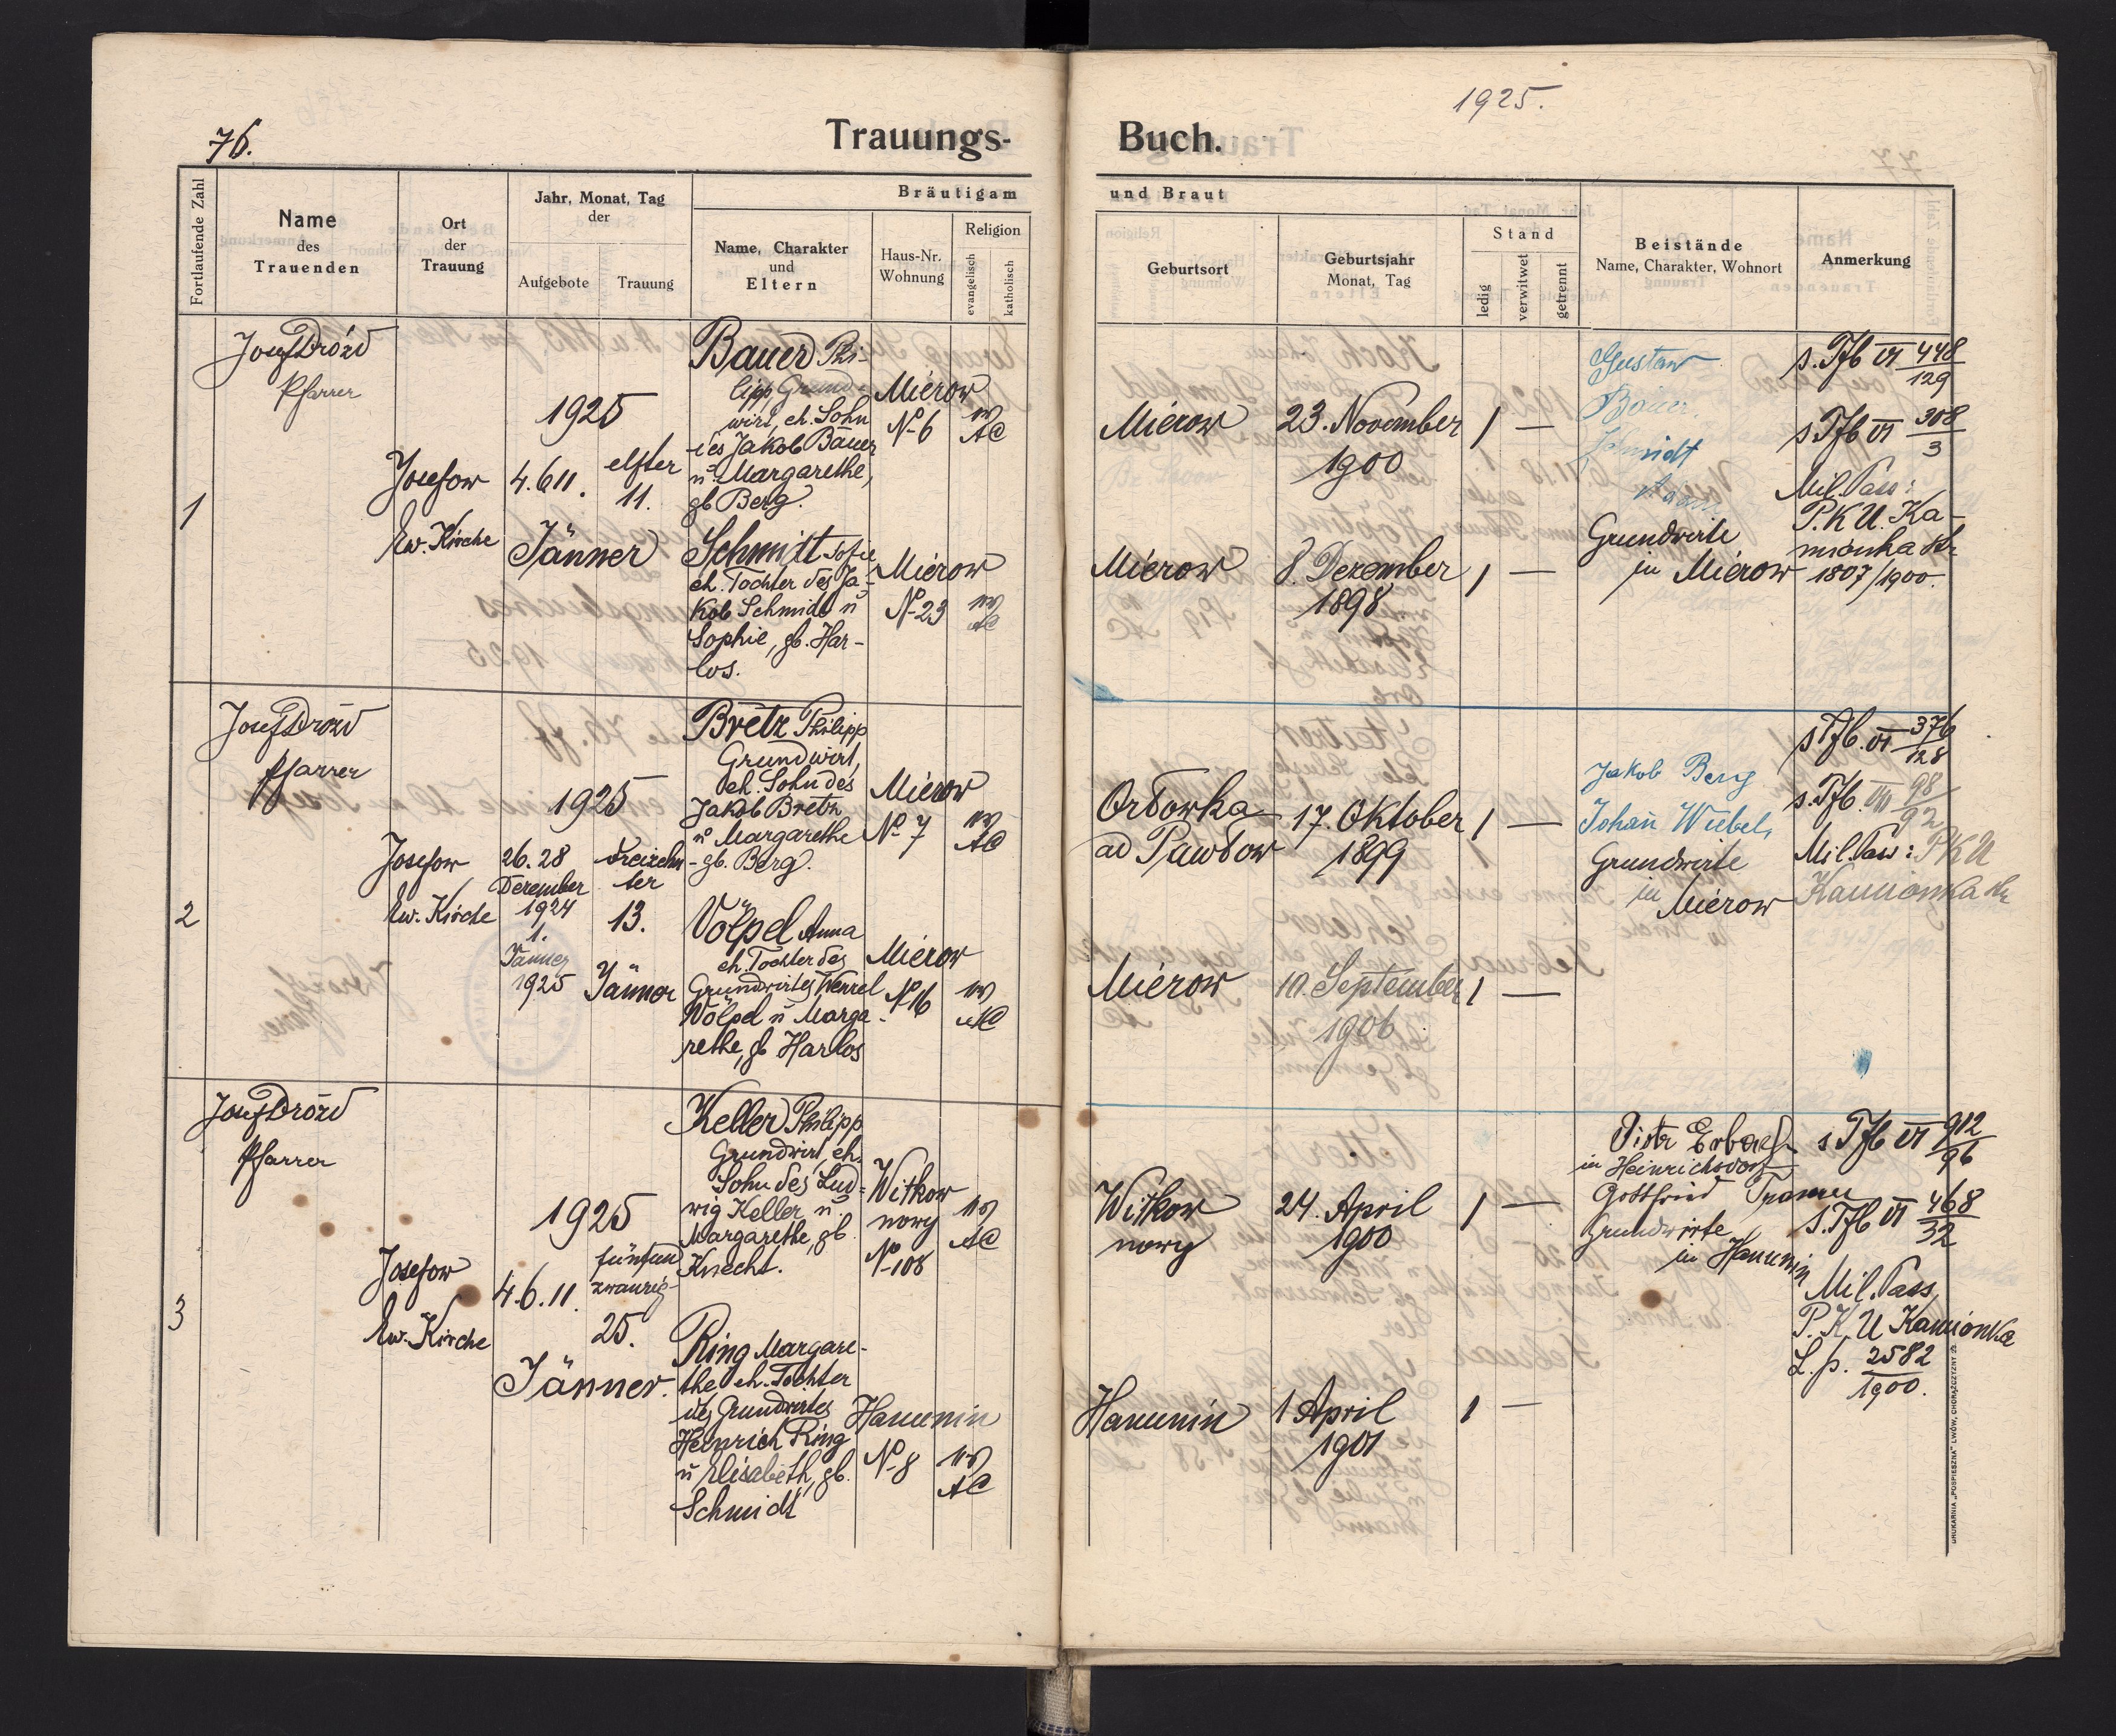 76.
Trauungs-
Buch.
1925.
Fortlaufende Zahl
Name
des
Trauenden
Ort
der
Trauung
Jahr, Monat, Tag
der
Aufgebote
Trauung
Bräutigam
Name, Charakter
und
Eltern
Haus-Nr.
Wohnung
Religion
evangelisch
katholisch
und Braut
Geburtsort
Geburtsjahr
Monat, Tag
Stand
ledig
verwitwet
getrennt
Beistände
Name, Charakter, Wohnort
Anmerkung
1
Josef Drózd
Pfarrer
Josefow
Ew. Kirche
1925
4. 6 11.
elfter
11.
Jänner
Bauer Phi-
lipp, Grund-
wirt, eh. Sohn
des Jakob Bauer
u Margarethe,
gb Berg.
Mierow
No 6
AC
Schmidt Sofie
eh. Tochter des Ja-
kob Schmidt u
Sophie, gb. Har-
los.
Mierow
No 23
AC
Mierow
23. November
1900
1 —
Mierow
8. Dezember
1898
1 —
Gustav
Bauer
Schmidt
Adam
Grundwirte
in Mierow
s. Tfb VI 448/129
s Tfb VI 308/3
Mil. Pass:
P.K.U. Ka-
mionka Str
1807/1900.
2
Josef Drózd
Pfarrer
Josefow
Ew. Kirche
1925
26. 28
Dezember
1924
1.
Jänner
1925
dreizehn-
ter
13.
Jänner
Bretz Philipp
Grundwirt,
eh. Sohn des
Jakob Bretz
u Margarethe
gb. Berg.
Mierow
No 7
AC
Völpel Anna
eh. Tochter des
Grundwirtes Wenzel
Völpel u Marga-
rethe, gb Harlos
Mierow
No 16
AC
Ordowka
ad Pawłow
17. Oktober
1899
1 —
Mierow
10. September
1906
1 —
Jakob Berg
Johan Wiebel,
Grundwirte
in Mierow
s Tfb. VI 376/128
s. Tfb. VII 98/92
Mil. Pass: PKU
Kamionka Str
3
Josef Drózd
Pfarrer
Josefow
Ew. Kirche
1925
4. 6. 11.
fünfund
zwanzig-
25.
Jänner.
Keller Philipp
Grundwirt, eh.
Sohn des Lud-
wig Keller u.
Margarethe, gb.
Knecht.
Witkow
nowy
No 108
AC
Ring Margare-
the eh. Tochter
des Grundwirtes
Heinrich Ring
u Elisabeth, gb.
Schmidt
Hanunin
No 8
AC
Witkow
nowy
24. April
1900
1 —
Hanunin
1 April
1901
1 —
Piotr Erbach
in Heinrichsdorf
Gottfried
Grundwirte
in Hanunin
s Tfb VI 912/96
s. Tfb VI 468/32
Mil. Pass
P. K. U Kamionka
L. p. 2582/1900.
DRUKARNIA „POSPIESZNA" LWÓW, CHORĄŻCZYZNY